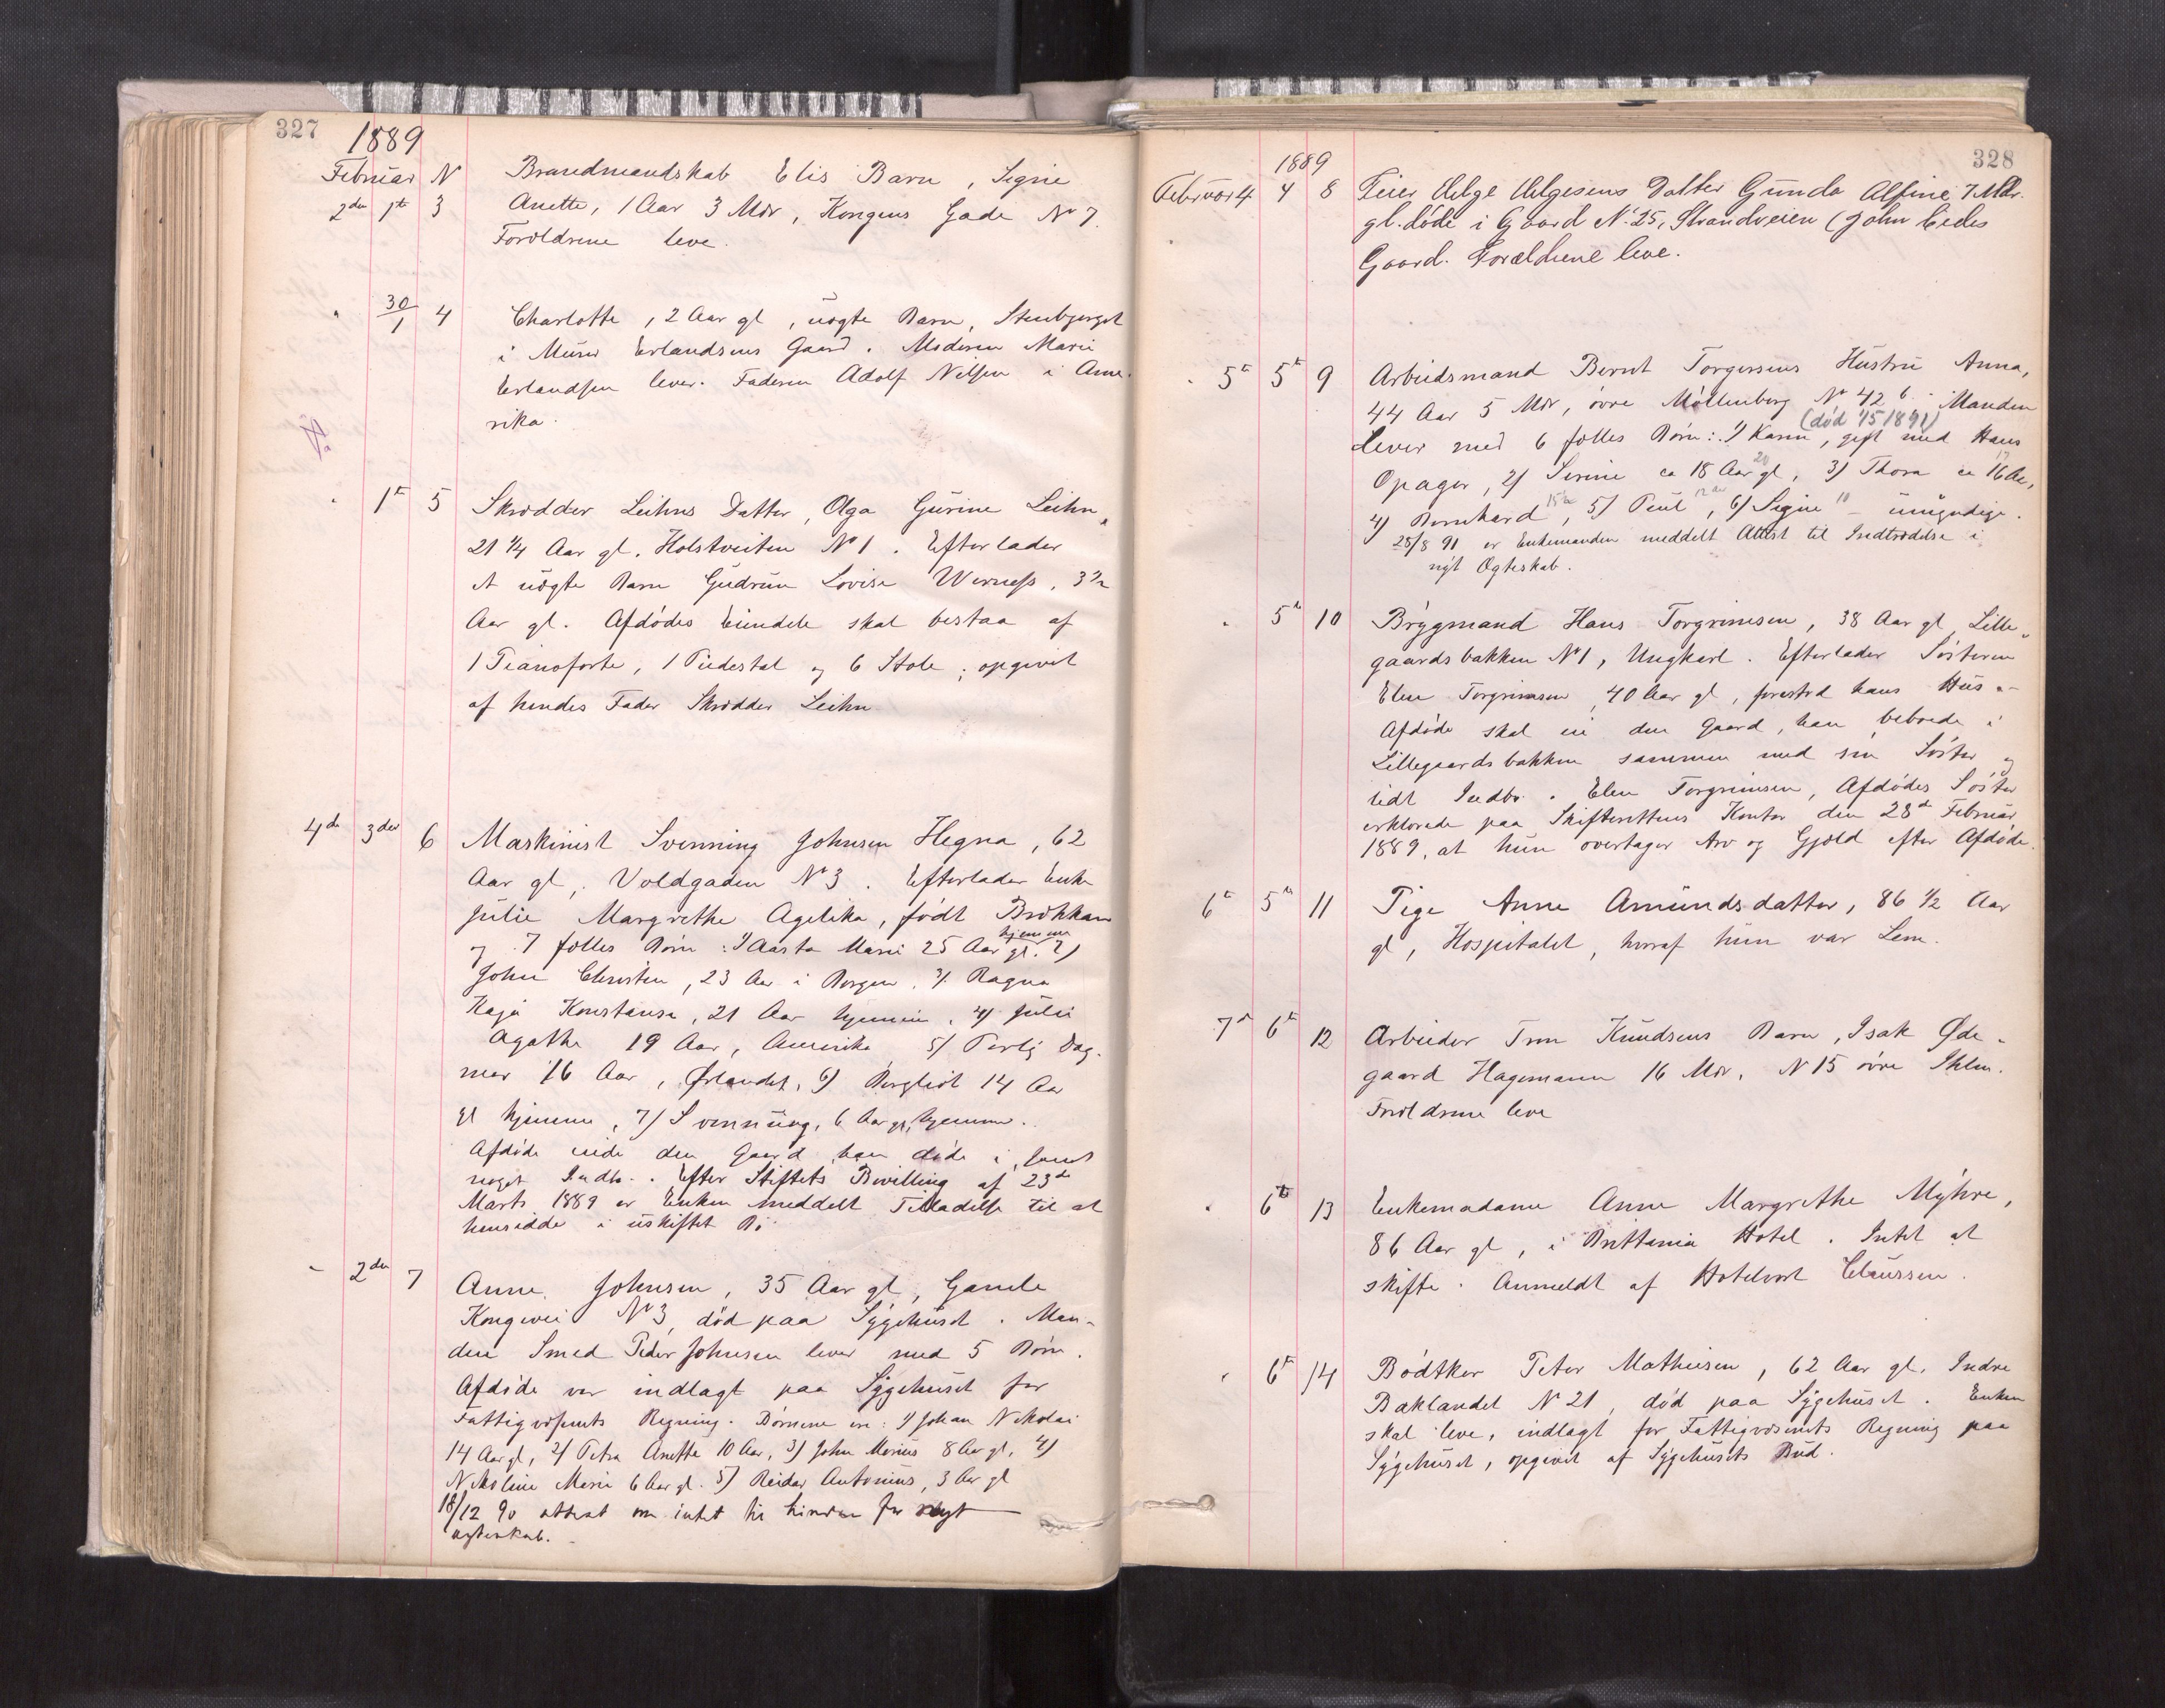 327
1889
Februar N
2den 1ste 3 Brandmandskab Elis Barn, Signe
Anette, 1 Aar 3 Mdr, Kongens Gade No 7.
Forældrene leve.
" 30/1 4 Charlotte, 2 Aar gl, uægte Barn, Stenbjerget
i Murer Erlandsens Gaard. Moderen Marie
Erlandsen lever. Faderen Adolf Nilsen i Ame-
rika.
" 1ste 5 Skrædder Leihns Datter, Olga Gurine Leihn,
21 1/4 Aar gl. Holstveiten No 1. Efterlader
et uægte Barn Gudrun Lovise Werness, 3 1/2
Aar gl. Afdødes Eiendele skal bestaa af
1 Pianoforte, 1 Piedestal og 6 Stole; opgivet
af hendes Fader Skrædder Leihn
4de 3die 6 Maskinist Svenning Johnsen Hegna, 62
Aar gl, Voldgaden No 3. Efterlader Enke
Julie Margrethe Agelika, født Brohkam
og 7 fælles Børn: 1) Aasta Marie 25 Aar gl. hjemme 2)
John Christen, 23 Aar i Bergen, 3) Ragna
Kaja Konstanse, 21 Aar hjemme, 4) Julie
Agathe 19 Aar, Amerika 5) Dag-
mar 16 Aar, Ørlandet, 6) Bergliot 14 Aar
gl hjemme, 7) Svenning, 6 Aar gl, hjemme.
Afdøde eiede den Gaard han døde i, samt
noget Indbo. Efter Stiftets Bevilling af 23de
Marts 1889 er Enken meddelt Tilladelse til at
hensidde i uskiftet Bo
" 2den 7 Anne Johnsen, 35 Aar gl, Gamle
Kongevei No 3, død paa Sygehuset. Man-
den Smed Peder Johnsen lever med 5 Børn.
Afdøde var indlagt paa Sygehuset for
Fattigvæsenets Regning. Børnene ere: 1) Johan Nikolai
14 Aar gl, 2) Petra Anette 10 Aar, 3) John Marius 8 Aar gl, 4)
Nikoline Marie 6 Aar gl. 5) Reidar Antonius, 3 Aar gl
18/12 90 attest om intet til hinder for nyt
ægteskab.
328
1889
Februar 4 4 8 Feier Helge Helgesens Datter Gunda Alfine 7 Mdr.
gl. døde i Gaard No 25, Strandveien (John Eides
Gaard. Forældrene leve.
" 5te 5te 9 Arbeidsmand Bernt Torgersens Hustru Anna,
44 Aar 5 Mdr, øvre Møllenberg No 42 b. Manden
(død 15 1891)
Lever med 6 fælles Børn: 1) Karen, gift med Hans
Opager, 2) Serine ca 18 Aar gl, 20 3) Thora ca 16 Aar, 17
4) Bernhard, 15 5) Peul, 12 6) Signe 10 – umyndige.
28/8 91 er Enkemanden meddelt Attest til Indtrædelse i
nyt Ægteskab.
" 5te 10 Brygmand Hans Torgrimsen, 38 Aar gl Lille-
gaardsbakken No 1, Ungkarl. Efterlader Søsteren
Elen Torgrimsen, 40 Aar gl, forestod hans Hus –
Afdøde skal eie den Gaard, han beboede i
Lillegaardsbakken sammen med sin Søster og
lidt Indbo. Elen Torgrimsen, Afdødes Søster
erklærede paa Skifterettens Kontor den 28de Februar
1889, at hun overtager Arv og Gjæld efter Afdøde.
6te 5te 11 Pige Anne Amundsdatter, 86 1/2 Aar
gl, Hospitalet, hvoraf hun var Lem.
7de 6te 12 Arbeider Tron Knudsens Barn, Isak Øde-
gaard Hagemann 16 Mdr, N 15 øvre Ihlen.
Forældrene leve
" 6te 13 Enkemadame Anne Margrethe Myhre,
86 Aar gl, i Brittania Hotel. Intet at
skifte. Anmeldt af Hotelvært Claussen.
" 6te 14 Bødtker Peter Mathiesen, 62 Aar gl. Indre
Baklandet N 21, død paa Sygehuset. Enken
skal leve, indlagt for Fattigvæsenets Regning paa
Sygehuset, opgivet af Sygehusets Bud.